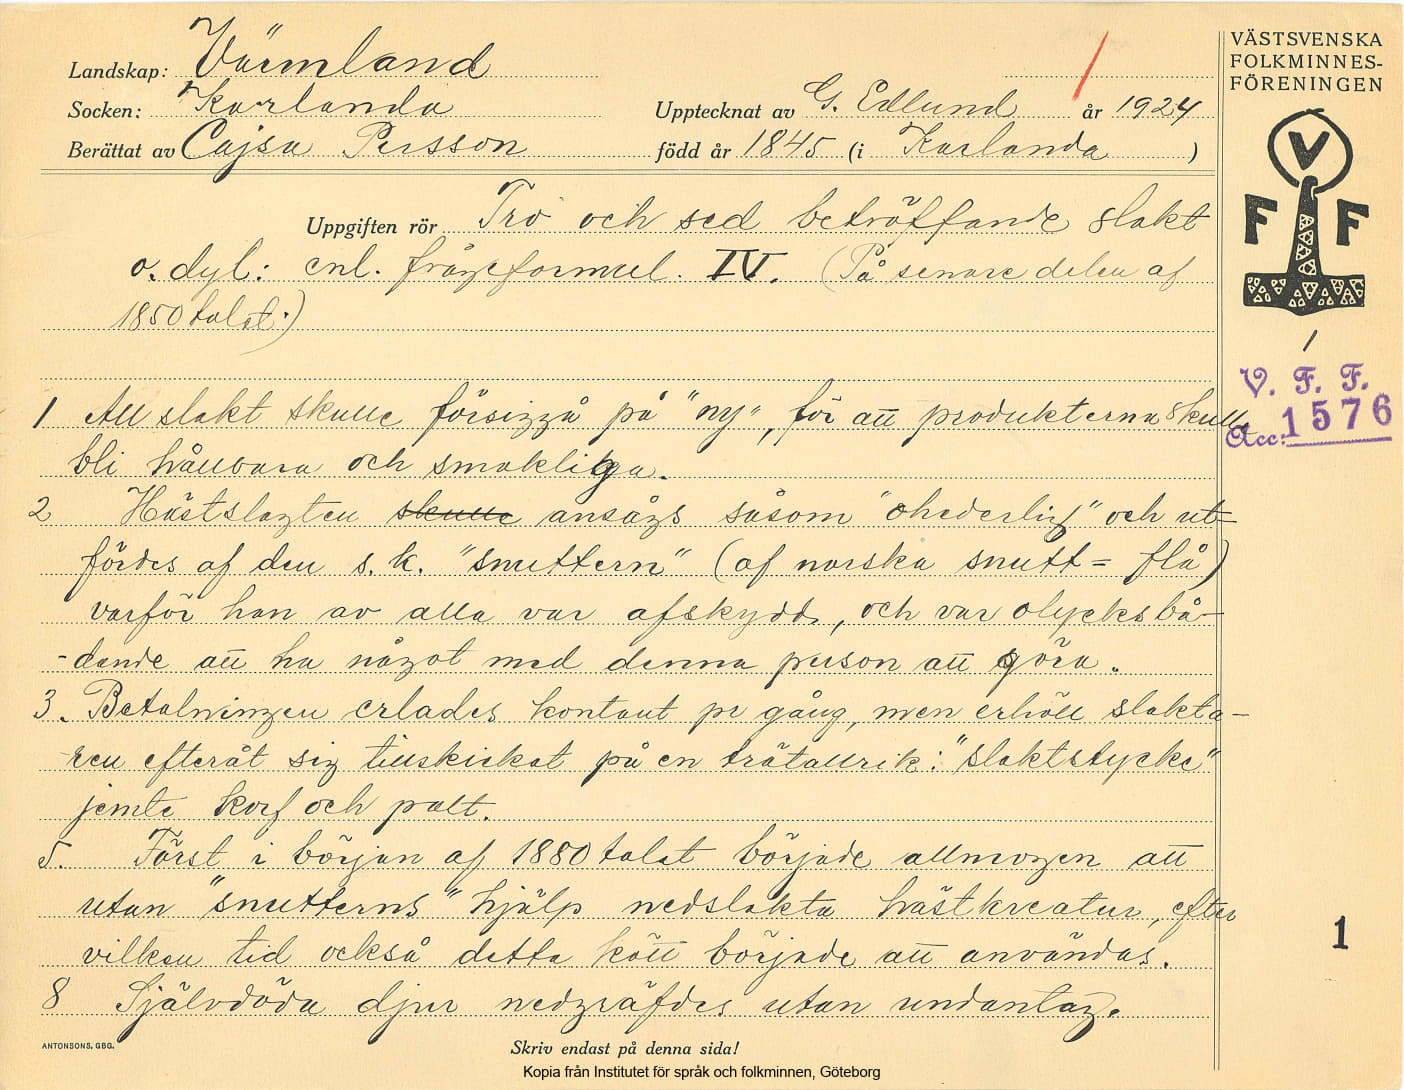 Landskap: Värmland
Socken: Karlanda
Upptecknat av G. Edlund år 1924
Berättat av Cajsa Persson född år 1845 (i Karlanda )
VÄSTSVENSKA
FOLKMINNES-
FÖRENINGEN
V
F F
1
V. F. F.
Acc: 1576
Uppgiften rör Tro och sed beträffande slakt
o. dyl: enl. frågeformul. IV. (På senare delen af
1850 talet.)
1 All slakt skulle försiggå på "ny", för att produkterna skulle
bli hållbara och smakliga.
2 Hästslagten skulle ansågs såsom "ohederlig" och ut=
fördes af den s.k. "snuttern" (af norska snutt = flå)
varför han av alla var afskydd, och var olycksbå-
-dande att ha något med denna person att göra.
3. Betalningen erlades kontant pr gång, men erhöll slakta-
ren efteråt sig tillskickat på en trätallrik: "slaktstycke"
jemte korf och palt.
5. Först i början af 1880 talet började allmogen att
utan "snutterns" hjälp nedslakta hästkreatur, efter
vilken tid också detta kött började att användas.
8 Självdöda djur nedgräfdes utan undantag.
1
ANTONSONS, GBG.
Skriv endast på denna sida!
Kopia från Institutet för språk och folkminnen, Göteborg